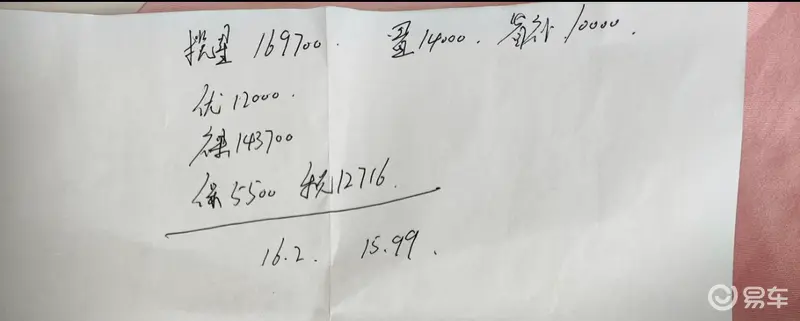 揽望 169700. 置14000. 省补10000.
优12000.
裸143700
保5500 税12716.
16.2. 15.99.
易车